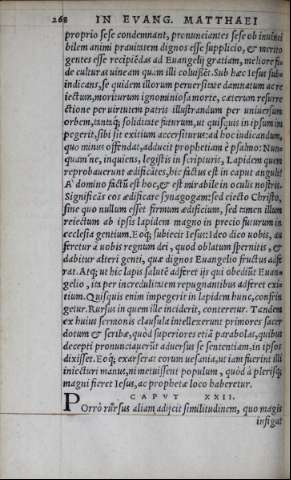 268 IN EVANG. MATTHAEI
proprio sese condemnant, pronunciantes sese ob
bilem animi prauitatem dignos esse supplicio, & merito
gentes esse recipiēdas ad Euangelij gratiam, meliore fru
de culturas uineam quam illi coluissēt. Sub hæc Iesus
indicans, se quidem illorum peruersitate damnatum ac re
iectum, moriturum ignominiosa morte, cæterum resurre
ctione per uirtutem patris illustrandum per uniuersum
orbem, tantaq; soliditate futurum, ut quisquis in ipsum im
pegerit, sibi sit exitium accersiturus: ad hoc indicandum,
quo minus offendat, adducit prophetiam è psalmo: Nun-
quam'ne, inquiens, legistis in scripturis, Lapidem quem
reprobauerunt ædificātes, hic factus est in caput anguli?
A' domino factū est hoc, & est mirabile in oculis nostris.
Significās eos ædificare synagogam: sed eiecto Christo,
sine quo nullum esset firmum ædificium, sed tamen illum
reiectum ab ipsis lapidem magno in precio futurum in
ecclesia gentium. Eoq; subiecit Iesus: Ideo dico uobis, au
feretur à uobis regnum dei, quod oblatum spernitis, &
dabitur alteri genti, quæ dignos Euangelio fructus adfe
rat. Atq; ut hic lapis salutē adferet ijs qui obediūt Euan-
gelio, ita per incredulitatem repugnantibus adferet exi-
tium. Quisquis enim impegerit in lapidem hunc, confrin
getur. Rursus in quem ille inciderit, conteretur. Tandem
ex huius sermonis clausula intellexerunt primores sacer
dotum & scribæ, quòd superiores etiā parabolas, quibus
decepti pronunciauerūt aduersus se sententiam, in ipsos
dixisset. Eoq; exarserat eorum uesania, ut iam fuerint illi
iniecturi manus, ni metuissent populum, quòd à plerisq;
magni fieret Iesus, ac propheta loco haberetur.
CAPVT XXII.
Porrò rursus aliam adijcit similitudinem, quo magis
infigat